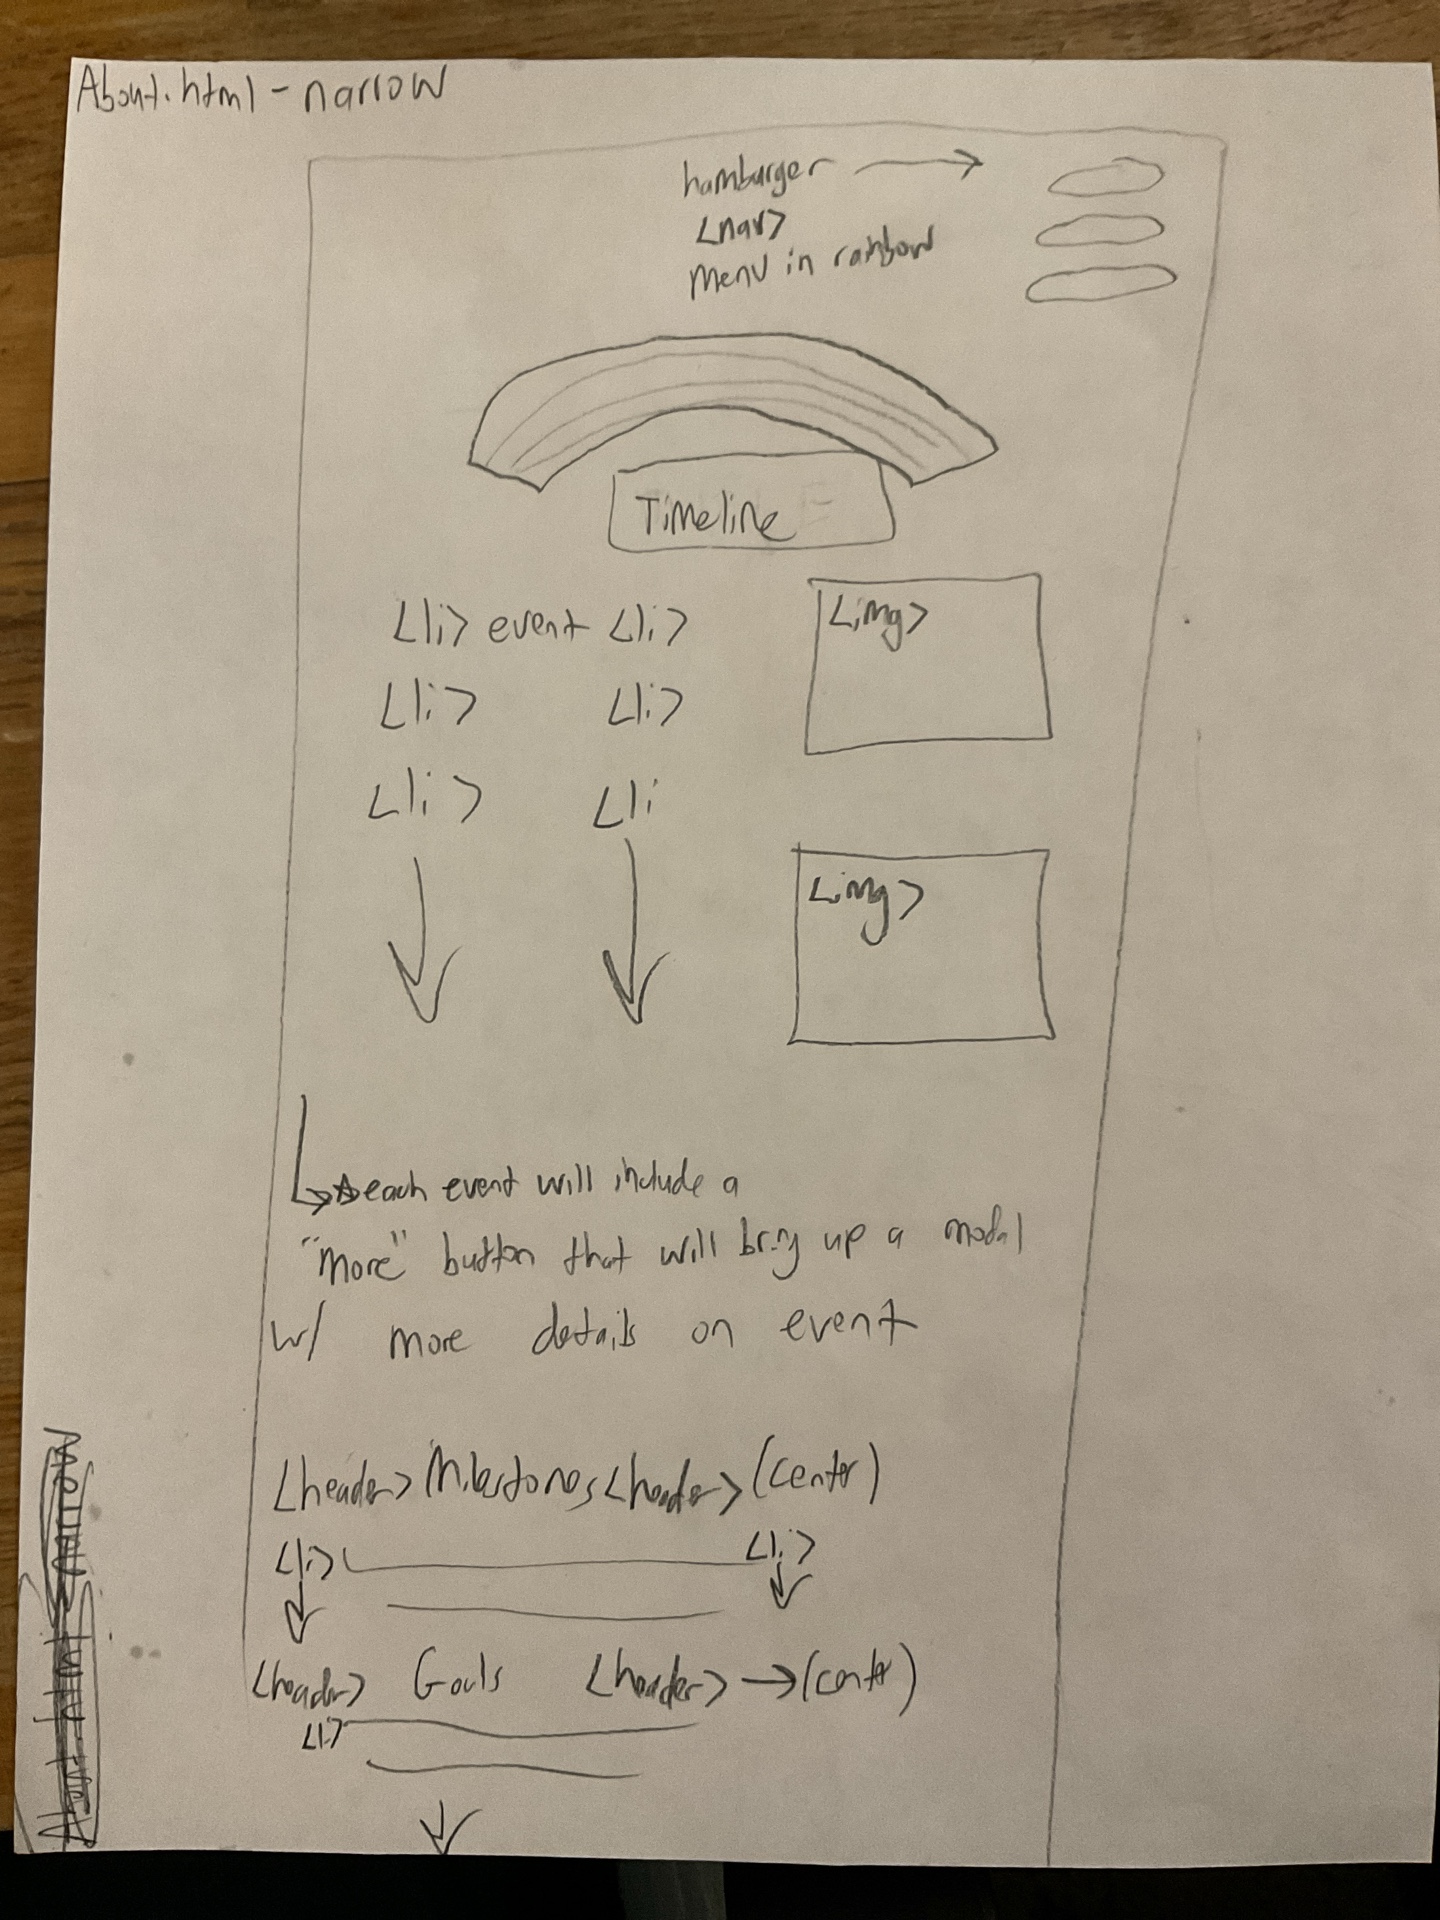 About.html - narrow
hamburger
<nav>
menu in rainbow
Timeline
<li> event <li>
<img>
<li> <li>
<li> <li
<img>
each event will include a
"more" button that will bring up a modal
w/ more details on event
<header> Milestones <header> (center)
<li> <li>
<header> Goals <header> → (center)
<li>